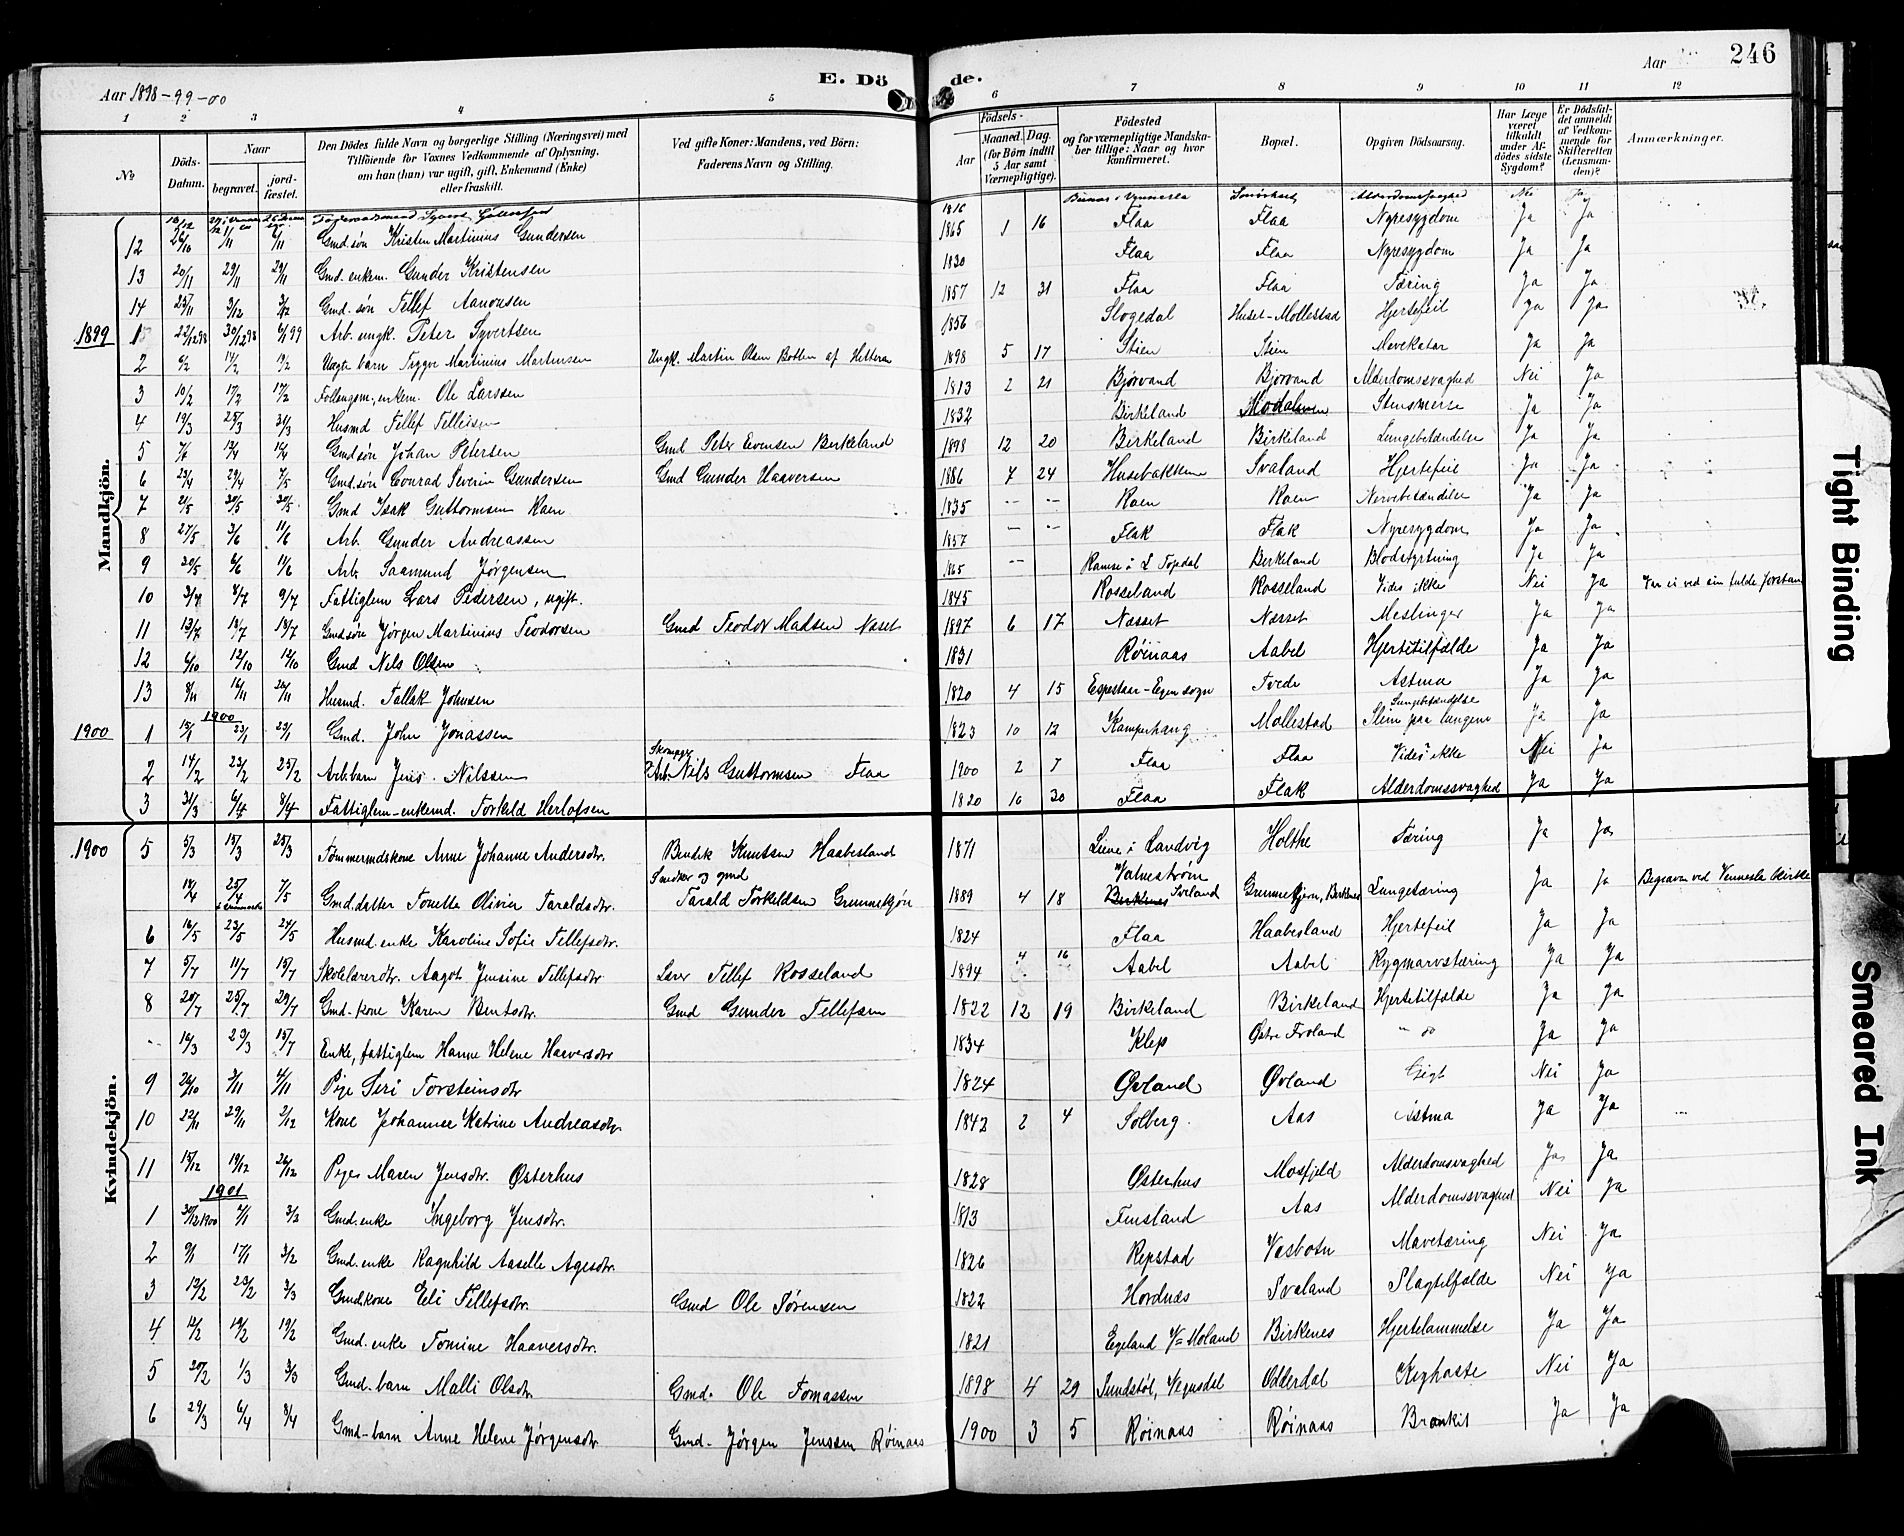 246
E. Dö de.
Aar 1898-99-00
Aar
1 2 3 4 5 6 7 8 9 10 11 12
No
Döds-Datum.
Naar
begravet.
jordfæstet.
Den Dödes fulde Navn og borgerlige Stilling (Næringsvei) med Tilföiende for Voxnes Vedkommende af Oplysning, om han (hun) var ugift, gift, Enkemand (Enke) eller fraskilt.
Ved gifte Koner: Mandens, ved Börn: Faderens Navn og Stilling.
Födsels-
Aar
Maaned. Dag. (for Börn indtil 5 Aar samt Værnepligtige).
Födested og for værnepligtige Mandskaber tillige: Naar og hvor konfirmeret.
Bopæl.
Opgiven Dödsaarsag.
Har Læge været tilkaldt under Afdödes sidste Sygdom?
Er Dödsfaldet anmeldt af Vedkommende for Skifteretten (Lensmanden)?
Anmærkninger.
Mandkjön.
1816 Alderdomssvaghed Nei Ja
12 26/10 /11 6/11 Gmd. søn Kristen Martinius Gundersen 1865 1 16 Flaa Flaa Nyresygdom Ja Ja
13 20/11 29/11 29/11 Gmd. enkem. Gunder Kristensen 1830 Flaa Flaa Nyresygdom Ja Ja
14 25/11 3/12 3/12 Gmd. søn Tellef Aanonsen 1857 12 31 Flaa Flaa Tæring Ja Ja
1899 1 22/12 98 30/12 98 6/1 99 Arb. ungk. Peter Syvertsen 1856 Slogedal Huset-Mollestad Hjertefeil Ja Ja
2 6/2 14/2 19/2 Uægte barn Tryggve Martinius Martinsen Ungk. Martin Olsen Botten af Hittera 1898 5 17 Stien Stien Mavekatar Ja Ja
3 10/2 17/2 17/2 Follougsm., enkem. Ole Larssen 1813 2 21 Bjorvand Bjorvand Alderdomssvaghed Nei Ja
4 19/3 25/3 31/3 Husmd Tellef Tellefsen 1832 Birkeland Modalen Stensmerte Ja Ja
5 7/6 13/4 14/4 Gmd søn Johan Petersen Gmd Peter Evensen Birkeland 1898 12 20 Birkeland Birkeland Lungebetændelse Ja Ja
6 23/4 29/4 7/5 Gmd. søn Conrad Severin Gundersen Gmd Gunder Haaversen 1886 7 24 Husebakken Svaland Hjertefeil Ja Ja
7 21/5 30/5 30/5 Gmd Isak Guttormsen Raen 1835 -- -- Raen Raen Nervebetændelse Ja Ja
8 27/5 3/6 11/6 Arb. Gunder Andreassen 1857 -- -- Flak Flak Nyresygdom Ja Ja
9 20/5 6/6 11/6 Arb. Saamund Jørgensen 1865 -- Ramse i L Topdal Birkeland Blodstyrtning Ja Ja
10 3/7 8/7 9/7 Fattiglem Lars Pedersen, ugift. 1845 Rosseland Rosseland Vides ikke Nei Ja Var ei ved sin fulde forstan
11 13/7 19/7 19/7 Gmd søn Jørgen Martinius Teodorsen Gmd Teodor Madsen Naset 1897 6 17 Næsset Næsset Meslinger Ja Ja
12 6/10 12/10 12/10 Gmd Nils Olsen 1831 Røinaas Aabel Hjertetilfælde Ja Ja
13 8/11 16/11 26/11 Husmd. Tallak Johnsen 1820 4 15 Espestaar-Egen sogn Tvede Astma Ja Ja
1900
1900 1 15/1 23/1 29/1 Gmd. John Jonassen 1823 10 12 Kamperhaug Mollestad Lungebetændelse Slim paa lungene Ja Ja
2 14/2 23/2 25/2 Arb. barn Jens Nilssen Arb. Nils Guttormsen Flaa 1900 2 7 Flaa Flaa Vides ikke Nei Ja
3 31/3 6/4 8/4 Fattiglem-enkemd. Torkeld Herlofsen 1820 10 30 Flaa Flak Alderdomssvaghed Ja Ja
Kvindekjön.
1900 5 5/3 15/3 25/3 Tømmermdskone Anne Johanne Andersdtr. Bendik Knutsen Haabesland 1871 Liene i Landvig Holthe Tæring Ja Ja
14/4 25/4 7/5 Gmd. datter Tonette Olivie Taraldsdtr. Snedker og gmd Tarald Torkeldsen Grummekjøn 1889 4 18 Valnestrøm Birkenes Sveland Grummekjern, Birkenes Lungetæring Ja Ja Begraven ved Vennesla kirke
6 16/5 23/5 24/5 Husmd. enke Karoline Sofie Tellefsdtr. 1824 Flaa Haabesland Hjertefeil Ja Ja
7 5/7 11/7 15/7 Skolelærerdtr. Aagot Jensine Tellefsdtr Lærer Tellef Rosseland 1894 4 16 Aabel Aabel Rygmarvstæring Ja Ja
8 20/7 25/7 29/7 Gmd-kone Karen Bentsdtr. Gmd Gunder Tellefsen 1822 12 19 Birkeland Birkeland Hjertetilfælde Ja Ja
-- 16/3 23/3 15/7 Enke, fattiglem Hanne Helene Haaversdtr 1834 Klep Østre Froland - " Ja Ja
9 26/10 3/11 4/11 Pige Seri Torsteinsdtr 1824 Øvland Øvland Gigt Nei Ja
10 22/11 29/11 2/12 Kone Johanne Katrine Andreasdtr 1842 2 4 Solberg. Aas Astma Ja Ja
11 15/12 19/12 26/12 Pige Maren Jensdtr. Østerhus 1828 Østerhus Mosfjeld Alderdomsvaghed Ja Ja
1901
1 30/12 1900 7/1 3/2 Gmd. enke Ingeborg Jensdtr. 1813 Finsland Aas Alderdomssvaghed Nei Ja
2 9/1 17/1 3/2 Gmd. enke Ragnhild Aaselle Agesdtr. 1826 Repstad Væsbotn Mavetæring Nei Ja
3 12/2 23/2 3/3 Gmdkone Eli Tellefsdtr. Gmd Ole Sørensen 1822 Hordnæs Svaland Slagtilfælde Nei Ja
4 12/2 19/2 19/2 Gmd. enke Tomine Haaversdtr. 1821 Egeland V= Moland Birkenes Hjertelammelse Ja Ja
5 20/2 1/3 3/3 Gmd. barn Malli Olsdtr Gmd. Ole Tomassen 1898 4 29 Sundstøl, Vegusdal Odderdal Kighoste Nei Ja
6 29/3 6/4 8/4 Gmd-barn Anne Helene Jørgensdtr Gmd. Jørgen Jenssen Røinaas 1900 3 5 Røinaas Røinaas Bronkit Ja Ja
Tight Binding
Smeared Ink